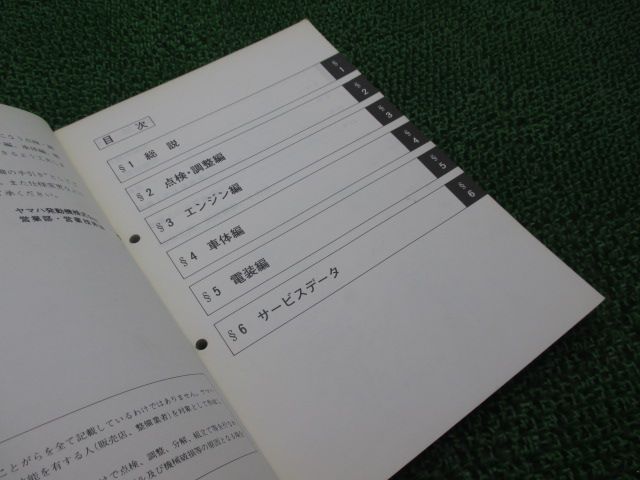 目 次
§1 総 説
§2 点検・調整編
§3 エンジン編
§4 車体編
§5 電装編
§6 サービスデータ
§1
§2
§3
§4
§5
§6
ヤマハ発動機株式会社
営業部・営業技術
ことがらを全て記載しているわけではありません。
能を有する人(販売店、整備業者)を対象として作成
で点検、調整、分解、組立て等を行な
及び機械破損等の原因となる